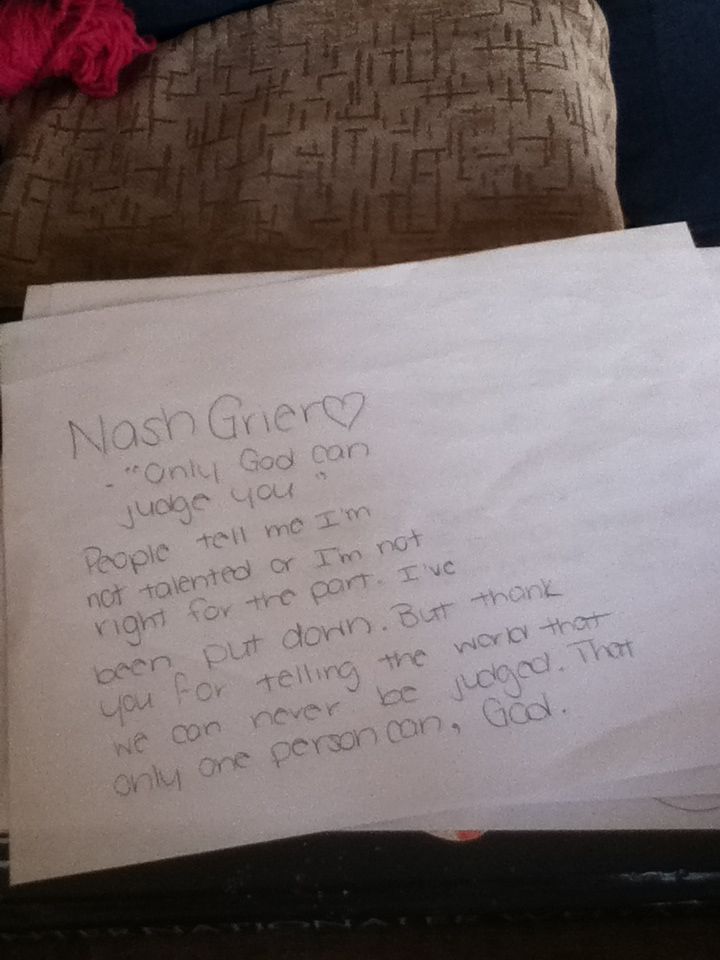 Nash Grier♡
- "Only God can
judge you"
People tell me I'm
not talented or I'm not
right for the part. I've
been put down. But thank
you for telling the world that
we can never be judged. That
only one person can, God.